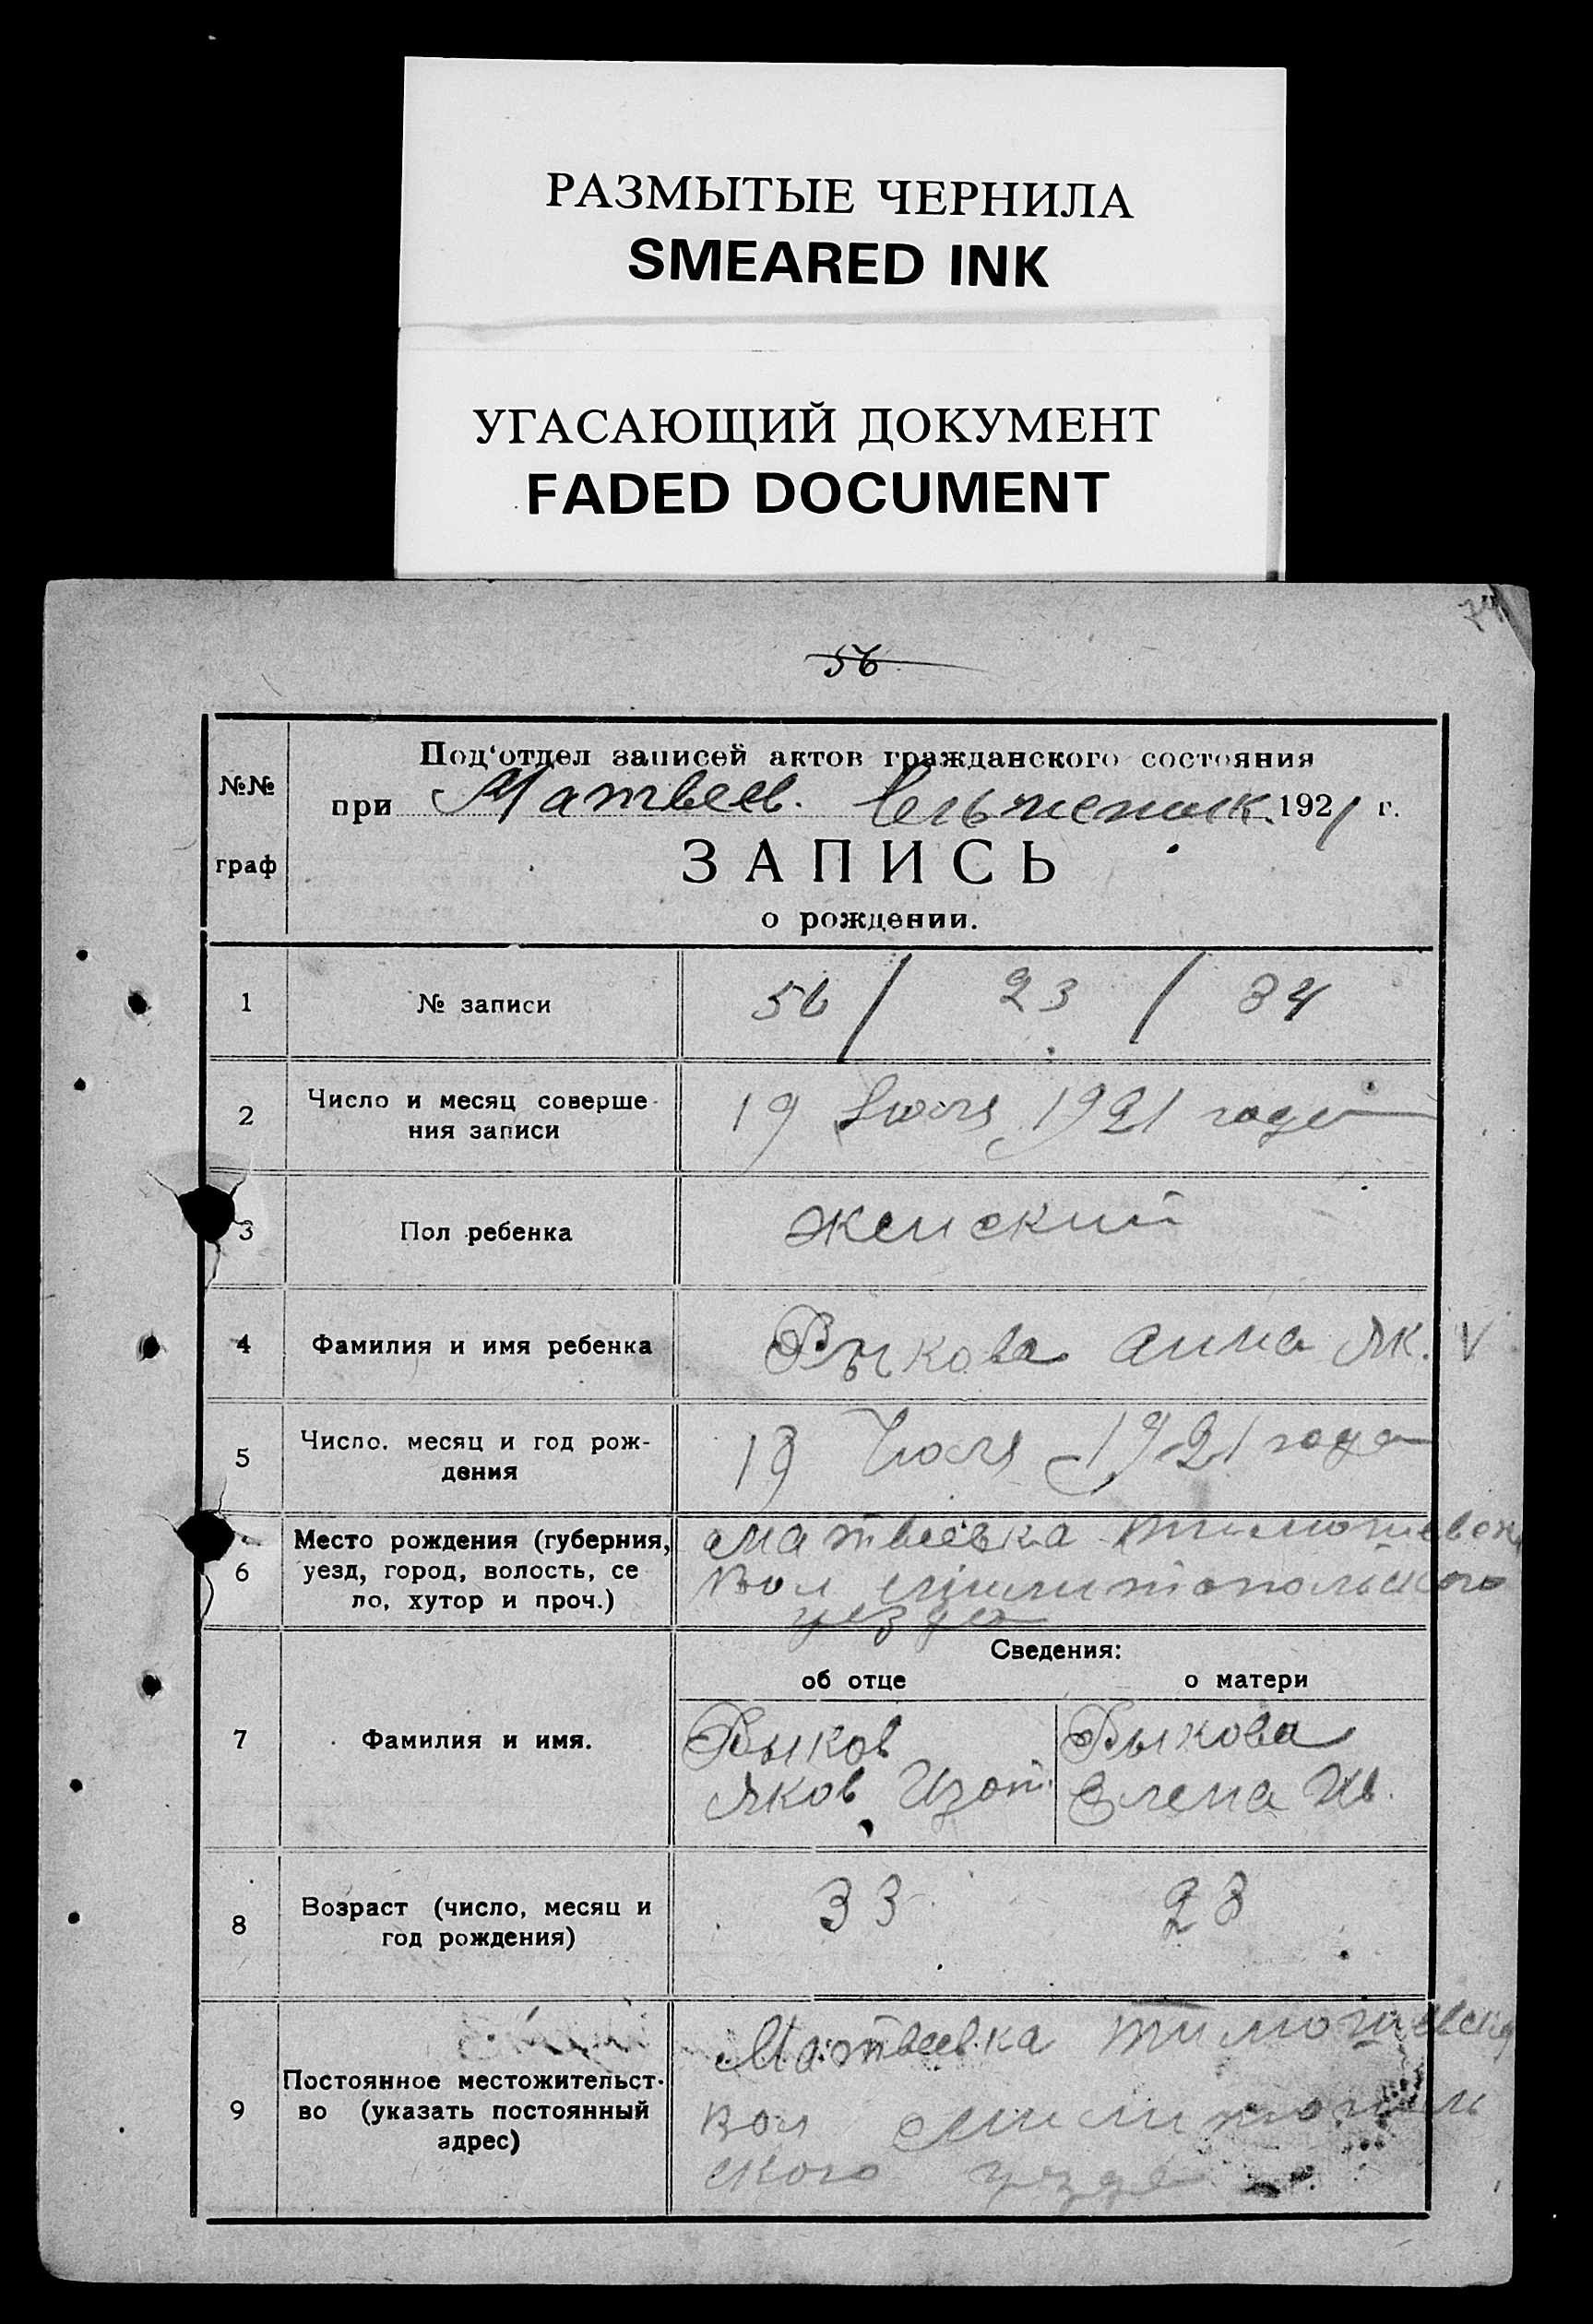 РАЗМЫТЫЕ ЧЕРНИЛА
SMEARED INK
УГАСАЮЩИЙ ДОКУМЕНТ
FADED DOCUMENT
56
№№ граф
Под‘отдел записей актов гражданского состояния
при Матвеев. 1921 г.
ЗАПИСЬ
о рождении.
1 № записи 56 / 23 / 34
2 Число и месяц соверше-
ния записи 19 Июля 1921 года
3 Пол ребенка женский
4 Фамилия и имя ребенка Быкова Анна Як. V
5 Число, месяц и год рож-
дения 18 Июля 1921 года
6 Место рождения (губерния, Матвеевка Тимошевск
уезд, город, волость, се вол Милитопольского
ло, хутор и проч.) уезда
Сведения:
об отце о матери
7 Фамилия и имя. Быков Быкова
Яков Изот. Елена Ив.
8 Возраст (число, месяц и
год рождения) 33 28
9 Постоянное местожительст-
во (указать постоянный
адрес)
Матвеевка Тимошевск
вол Милитополь
ского уезда